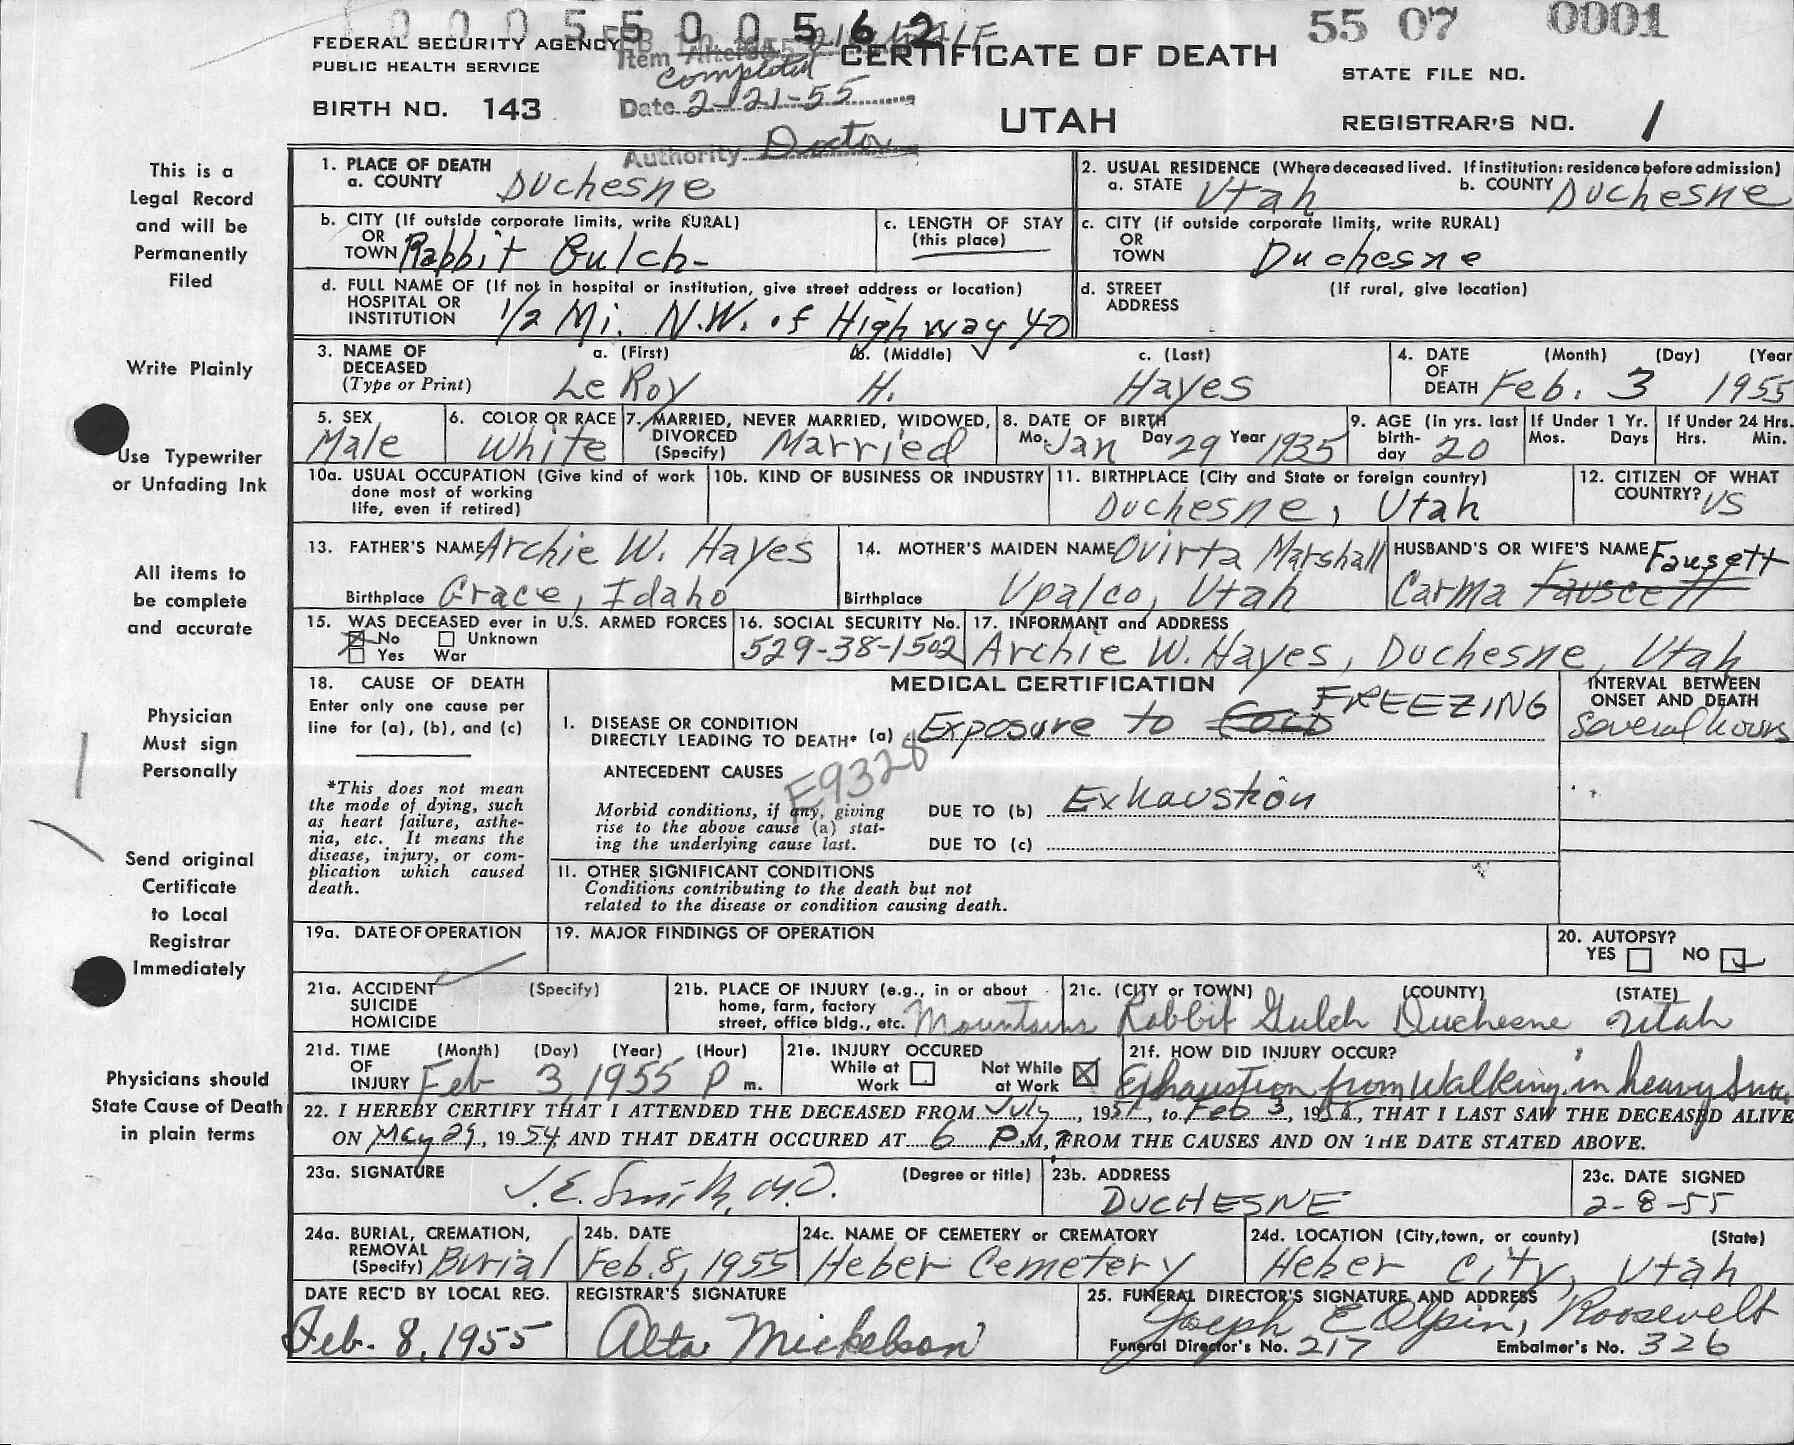 0 0 0 5 5 0 0 5 6 2
55 07 0001
FEDERAL SECURITY AGENCY
PUBLIC HEALTH SERVICE
Item Altered
Completed
CERTIFICATE OF DEATH
STATE FILE NO.
BIRTH NO. 143
Date 2-21-55
UTAH
REGISTRAR'S NO. 1
Authority Doctor
This is a
Legal Record
and will be
Permanently
Filed
Write Plainly
Use Typewriter
or Unfading Ink
All items to
be complete
and accurate
Physician
Must sign
Personally
Send original
Certificate
to Local
Registrar
Immediately
Physicians should
State Cause of Death
in plain terms
1. PLACE OF DEATH
a. COUNTY Duchesne
2. USUAL RESIDENCE (Where deceased lived. If institution: residence before admission)
a. STATE Utah b. COUNTY Duchesne
b. CITY (If outside corporate limits, write RURAL)
OR
TOWN Rabbit Gulch-
c. LENGTH OF STAY
(this place)
c. CITY (if outside corporate limits, write RURAL)
OR
TOWN Duchesne
d. FULL NAME OF (If not in hospital or institution, give street address or location)
HOSPITAL OR
INSTITUTION 1/2 Mi. N.W. of Highway 40
d. STREET (If rural, give location)
ADDRESS
3. NAME OF DECEASED
(Type or Print)
a. (First) b. (Middle) c. (Last)
LeRoy H. Hayes
4. DATE OF DEATH (Month) (Day) (Year
Feb. 3 1955
5. SEX
Male
6. COLOR OR RACE
White
7. MARRIED, NEVER MARRIED, WIDOWED,
DIVORCED
(Specify) Married
8. DATE OF BIRTH
Mo. Jan Day 29 Year 1935
9. AGE (in yrs. last
birth-
day 20
If Under 1 Yr.
Mos. Days
If Under 24 Hrs.
Hrs. Min.
10a. USUAL OCCUPATION (Give kind of work
done most of working
life, even if retired)
10b. KIND OF BUSINESS OR INDUSTRY
11. BIRTHPLACE (City and State or foreign country)
Duchesne, Utah
12. CITIZEN OF WHAT
COUNTRY? US
13. FATHER'S NAME Archie W. Hayes
Birthplace Grace, Idaho
14. MOTHER'S MAIDEN NAME Ovirta Marshall
Birthplace Upalco, Utah
HUSBAND'S OR WIFE'S NAME Fausett
Carma Fauscett
15. WAS DECEASED ever in U.S. ARMED FORCES
No Unknown
Yes War
16. SOCIAL SECURITY No.
529-38-1502
17. INFORMANT and ADDRESS
Archie W. Hayes, Duchesne, Utah
18. CAUSE OF DEATH
Enter only one cause per
line for (a), (b), and (c)
*This does not mean
the mode of dying, such
as heart failure, asthe-
nia, etc. It means the
disease, injury, or com-
plication which caused
death.
MEDICAL CERTIFICATION
INTERVAL BETWEEN
ONSET AND DEATH
Several hours
I. DISEASE OR CONDITION
DIRECTLY LEADING TO DEATH* (a) Exposure to Cold FREEZING
E9328
ANTECEDENT CAUSES
Morbid conditions, if any, giving
rise to the above cause (a) stat-
ing the underlying cause last.
DUE TO (b) Exhaustion
DUE TO (c)
II. OTHER SIGNIFICANT CONDITIONS
Conditions contributing to the death but not
related to the disease or condition causing death.
19a. DATE OF OPERATION
19. MAJOR FINDINGS OF OPERATION
20. AUTOPSY?
YES NO
21a. ACCIDENT (Specify)
SUICIDE
HOMICIDE
21b. PLACE OF INJURY (e.g., in or about
home, farm, factory
street, office bldg., etc. Mountains
21c. (CITY or TOWN) (COUNTY) (STATE)
Rabbit Gulch Duchesne Utah
21d. TIME (Month) (Day) (Year) (Hour)
OF
INJURY Feb 3, 1955 P m.
21e. INJURY OCCURED
While at Work
Not While at Work
21f. HOW DID INJURY OCCUR?
Exhaustion from walking in heavy snow
22. I HEREBY CERTIFY THAT I ATTENDED THE DECEASED FROM July, 195 , to Feb 3, 195 , THAT I LAST SAW THE DECEASED ALIVE
ON May 29, 1954 AND THAT DEATH OCCURED AT 6 P.M, FROM THE CAUSES AND ON THE DATE STATED ABOVE.
23a. SIGNATURE (Degree or title)
J. E. Smith, M.D.
23b. ADDRESS
DUCHESNE
23c. DATE SIGNED
2-8-55
24a. BURIAL, CREMATION,
REMOVAL
(Specify) Burial
24b. DATE
Feb. 8, 1955
24c. NAME OF CEMETERY or CREMATORY
Heber Cemetery
24d. LOCATION (City, town, or county) (State)
Heber City, Utah
DATE REC'D BY LOCAL REG.
Feb. 8, 1955
REGISTRAR'S SIGNATURE
Alta Mickelson
25. FUNERAL DIRECTOR'S SIGNATURE AND ADDRESS
Joseph E Olpin, Roosevelt
Funeral Director's No. 217 Embalmer's No. 326